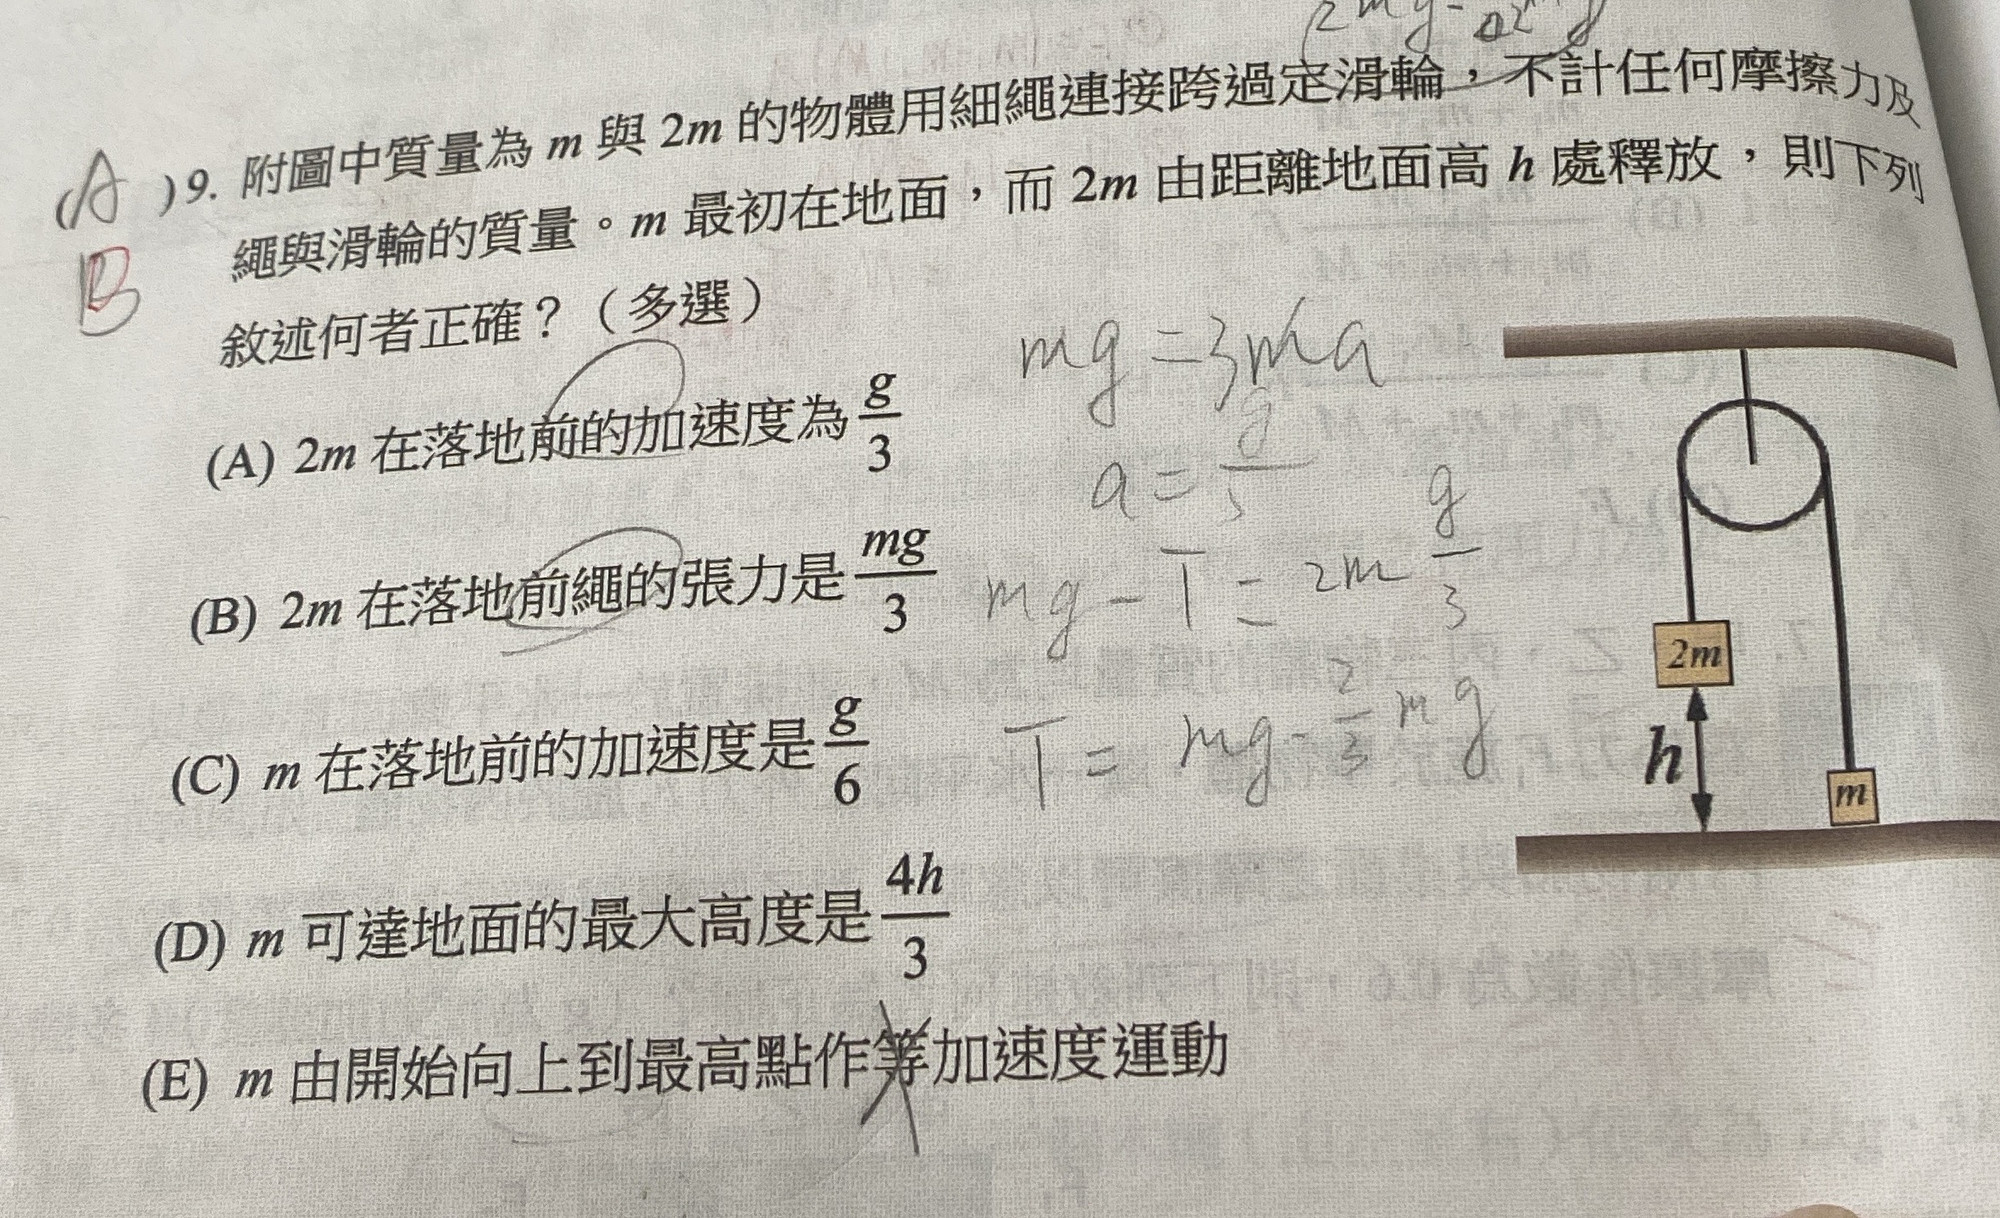 (A)9. 附圖中質量為 m 與 2m 的物體用細繩連接跨過定滑輪，不計任何摩擦力及
B
繩與滑輪的質量。m 最初在地面，而 2m 由距離地面高 h 處釋放，則下列
敘述何者正確？（多選）
(A) 2m 在落地前的加速度為 g/3
(B) 2m 在落地前繩的張力是 mg/3
(C) m 在落地前的加速度是 g/6
(D) m 可達地面的最大高度是 4h/3
(E) m 由開始向上到最高點作等加速度運動
mg = 3ma
mg - T = 2m g/3
T = mg - 2/3 mg
2m
h
m